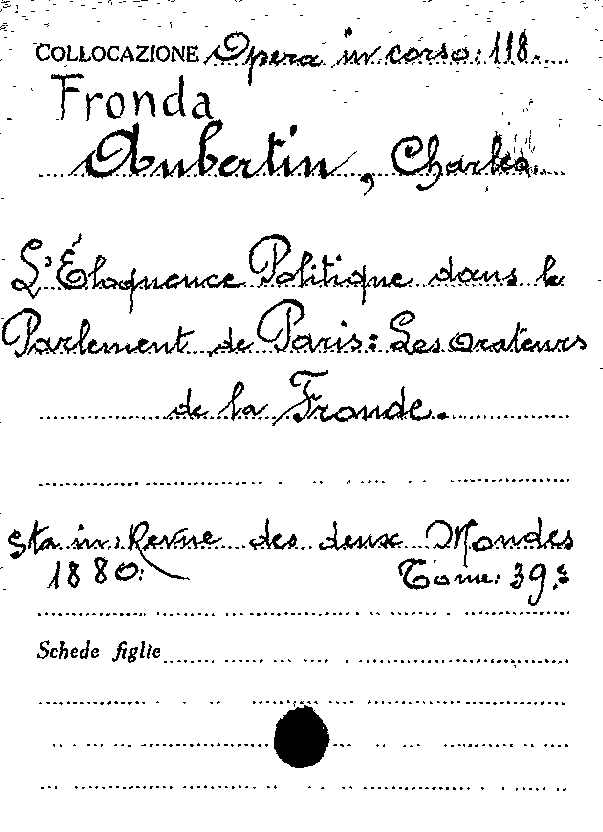 COLLOCAZIONE Opera in corso: 118.
Fronda
Aubertin, Charles.
L'Éloquence Politique dans le
Parlement de Paris: Les orateurs
de la Fronde.
Sta in: Revue des deux Mondes
1880: Tome: 39.
Schede figlie